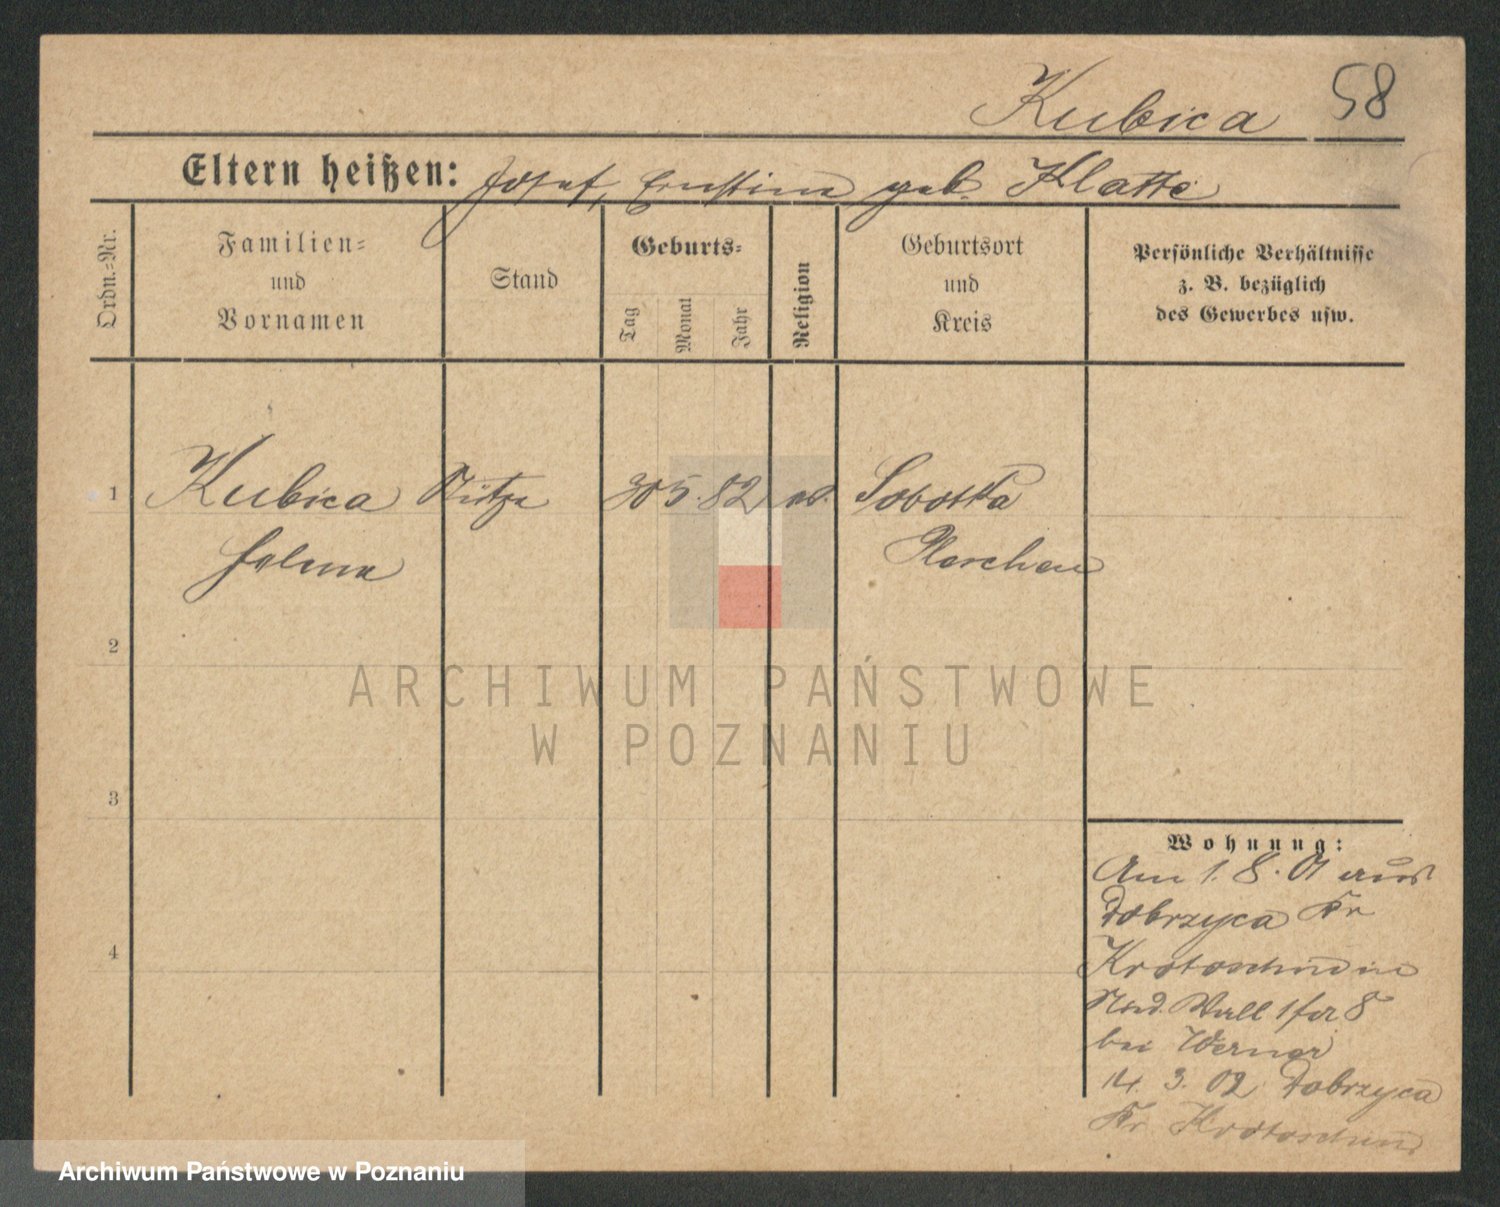 Kubica 58
Eltern heißen: Josef, Ernstine geb. Klatte
Ordn.-Nr.
Familien-
und
Vornamen
Stand
Geburts-
Tag
Monat
Jahr
Religion
Geburtsort
und
Kreis
Persönliche Verhältnisse
z. B. bezüglich
des Gewerbes usw.
1 Kubica Stütze 30 5. 82 ev. Sobotka
Pleschen
2
3
4
Wohnung:
Am 1. 8. 01 aus
Dobrzyca Kr
Krotoschin in
Wall 8
bei Werner
14. 3. 02 Dobrzyca
Kr. Krotoschin
ARCHIWUM PAŃSTWOWE
W POZNANIU
Archiwum Państwowe w Poznaniu